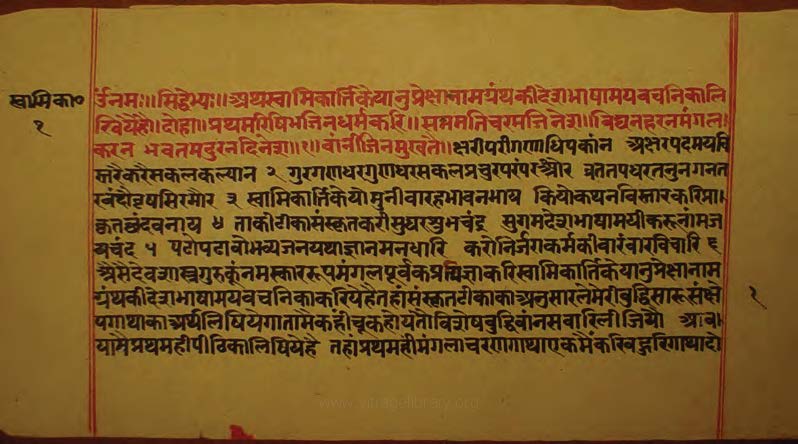 स्वामिका०
१
उँनमः॥सिद्धेभ्यः॥अथस्वामिकार्तिकेयानुप्रेक्षानामग्रंथकीदेशभाषामयवचनिकालि
षियेहै॥दोहा॥प्रथमरिषिभजिनधर्मकरि॥सनमतिचरमजिनेश॥विघनहरनमंगल
करन भवतमदुरनदिनेश॥१॥वांनीजिनमुखतै॥क्षरीपरीगणाधिपकांन अक्षरपदमयवि
स्तरैकरैसकलकल्यान २ गुरगणधरगुणधरसकलप्रचुरपरंपरऔर व्रततपधरतनुनगनत
रवंदौवृषसिरमौर ३ स्वामिकार्तिकेयोमुनीबारहभावनभाय कियोकथनविस्तारकरिप्रा।
कृतछंदबनाय ४ ताकीटीकासंस्कृतकरीसुधरशुभचंद्र सुगमदेशभाषामयीकरूनांमज
यचंद्र ५ पढोपढावोभव्यजनयथाज्ञानमनधारि करोनिर्जराकर्मकीवारंवारविचारि ६
अैसैदेवशास्त्रगुरुकूंनमस्काररूपमंगलपूर्वकप्रतिज्ञाकरिस्वामिकार्तिकेयानुप्रेक्षानाम
ग्रंथकीदेशभाषामयवचनिकाकरियेहैतहांसंस्कृतटीकाकाअनुसारलेमेरीबुद्धिसारूसंक्षे
पगाथाकाअर्थलिषियेगातामैकहींचूकहोयतोविशेषबुद्धिवांनसवारिलीजियौ
यामैप्रथमहीपीठिकालिषियेहै तहांप्रथमहीमंगलाचरणगाथाएकमैंकरिबहुरिगाथादो
१
www.vitragelibrary.org